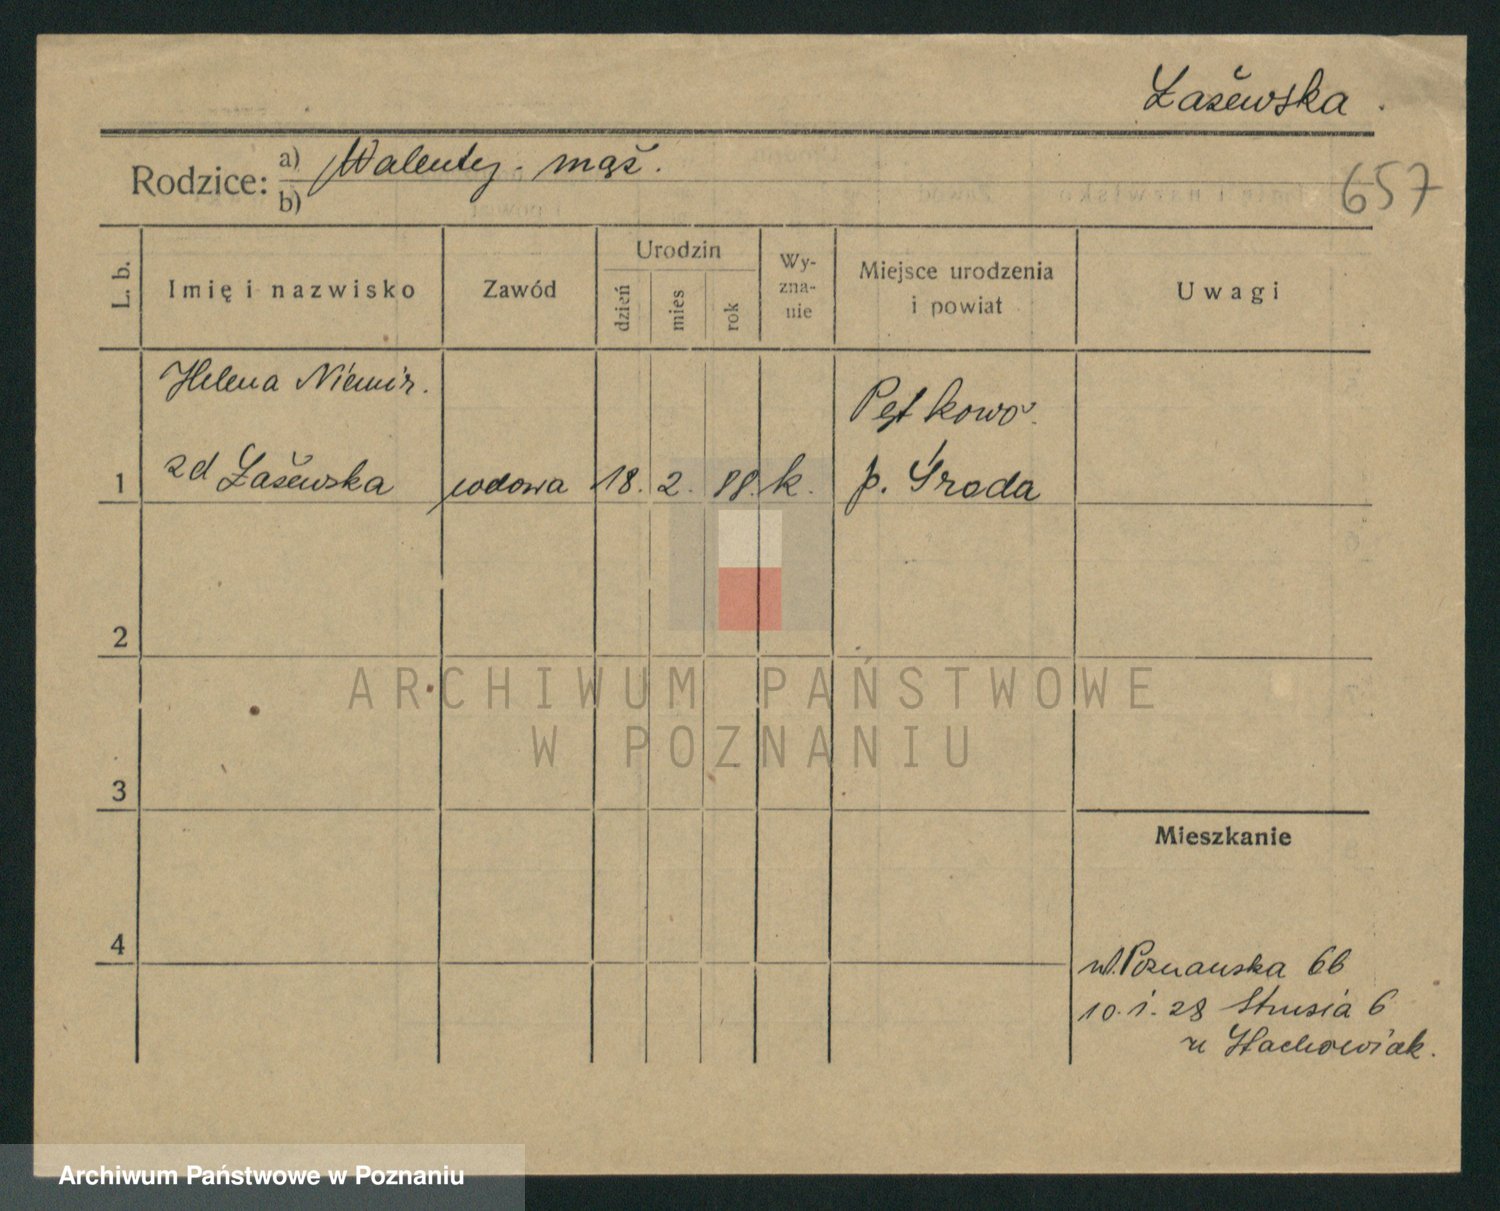 Łażewska.
Rodzice: a) Walenty. mąż.
b)
657
L. b.
Imię i nazwisko
Zawód
Urodzin
dzień
mies
rok
Wy-
zna-
nie
Miejsce urodzenia
i powiat
Uwagi
Helena Niemir.
Pętkowo.
1 zd Łażewska wdowa 18. 2. 88. k. p. Środa
2
ARCHIWUM PAŃSTWOWE
W POZNANIU
3
Mieszkanie
4
ul. Poznańska 66
10. 1. 28 Strusia 6
u Stachowiak.
Archiwum Państwowe w Poznaniu